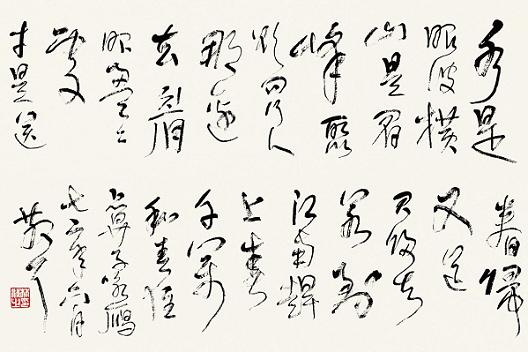 水是
眼波横
山是眉
峰聚
欲问行人
那边
去眉
眼盈盈
处
才是送
春归
又送
君归去
若到
江南赶
上春
千万
和春住
年六月